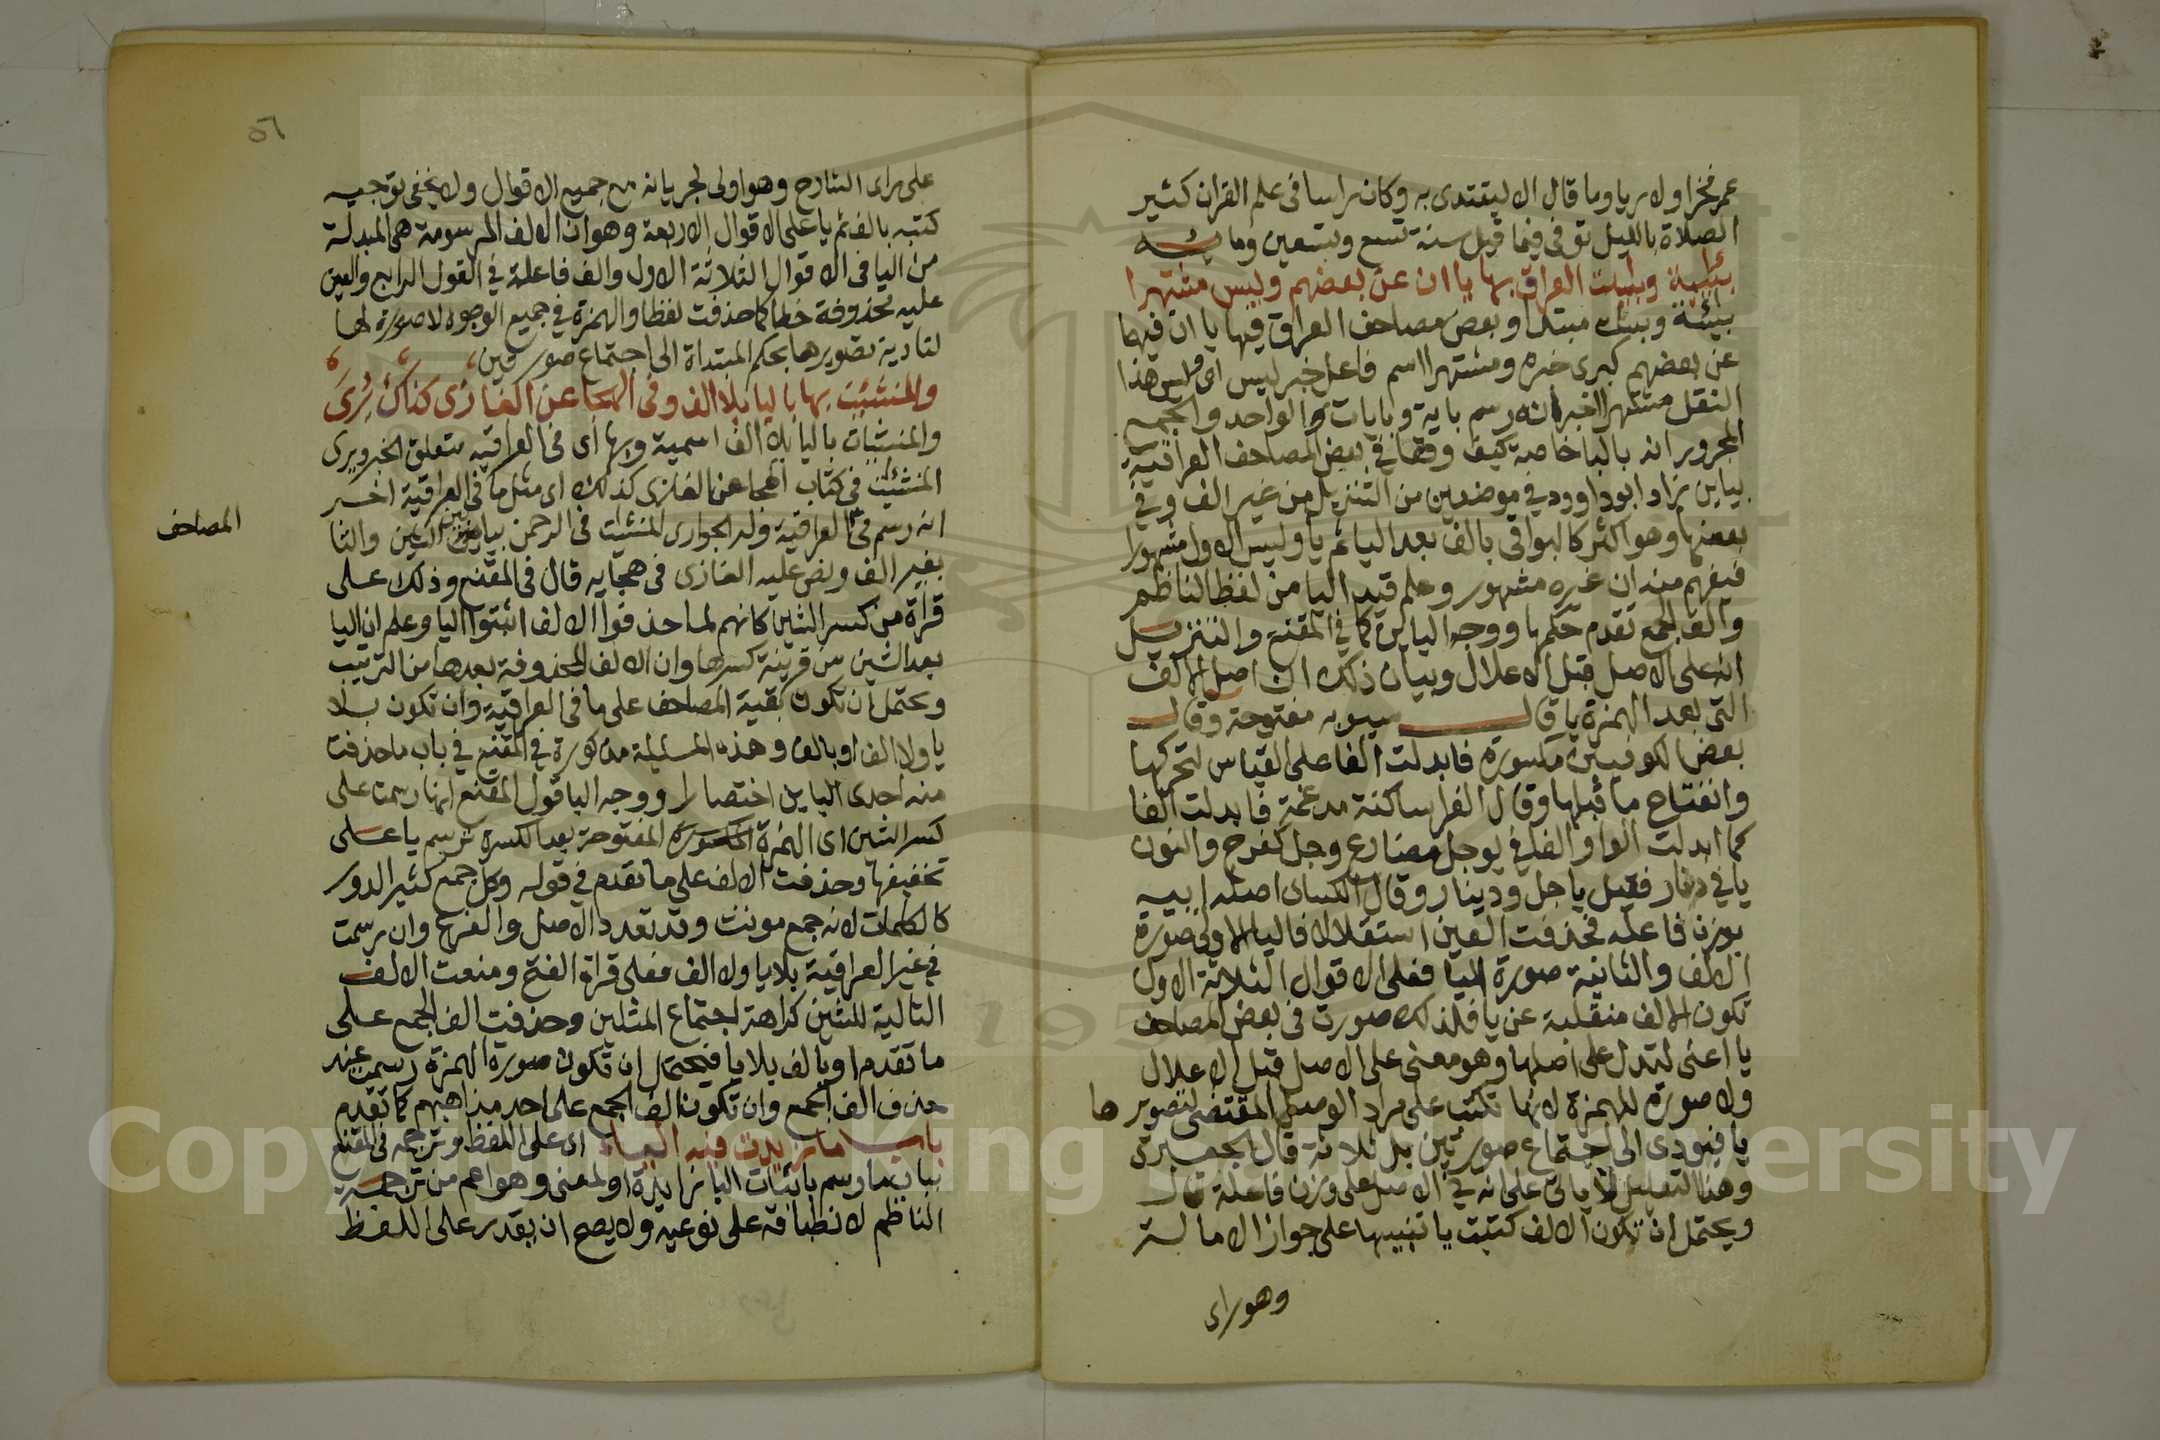 عمر فخرا ولا ريا وما قال الا ليقتدى به وكان راسا فى علم القران كثير
الصلاة بالليل توفى فيما قيل سنة تسع وتسعين وماية
باييه وبايت العراق بها يا ان عن بعضهم وليس مشتهرا
بايية وبايت مبتدا وبعض مصاحف العراق فيها يا ان فيها
عن بعضهم كبرى خبره ومشتهرا اسم فاعل خبر ليس اى وليس هذا
النقل مشتهرا اخبر انه رسم باية وبايات والواحد والجمع
المجرور انه بالبا خاصة كيف وقعا فى بعض المصاحف العراقية
بياين زاد ابو داوود فى موضعين من التنزيل من غير الف وفى
بعضها وهو اكثر كالبواقى بالف بعد اليا ثم يا وليس الاول مشهورا
فيفهم منه ان غيره مشهور وعلم قيد اليا من لفظ الناظم
والف الجمع تقدم حكمها ووجه الياين كما فى المقنع والتنزيل
انه على الاصل قبل الاعلال وبيان ذلك ان اصل الالف
التى بعد الهمزة يا قال سيبويه مفتوحة وقال
بعض الكوفيين مكسورة فابدلت الفا على القياس لتحركها
وانفتاح ما قبلها وقال الفرا ساكنة مدغمة فابدلت الفا
كما ابدلت الواو الفا فى يوجل مضارع وجل كفرح والنون
يا فى دنار فقيل ياجل ودينار وقال الكساى اصله اييه
بوزن فاعله فحذفت العين استقلالا فاليا الاولى صورة
الالف والثانية صورة اليا فعلى الاقوال الثلاثة الاول
تكون الالف منقلبة عن يا فلذلك صورت فى بعض المصاحف
يا اعنى لتدل على اصلها وهو معنى على الاصل قبل الاعلال
ولا صورة للهمزة لانها تكتب على مراد الوصل المقتضى لتصويرها
يا فيودى الى اجتماع صورتين بل ثلاثة قال الجعبرى
وهذا التعليل لا ياتى على انه فى الاصل على وزن فاعلة قال
ويحتمل ان تكون الالف كتبت يا تنبيها على جواز الامالة
وهو راى
٥٦
على راى الشارح وهو اولى لجريانه مع جميع الاقوال ولا يخفى توجيه
كتبه بالف ثم يا على الاقوال الاربعة وهو ان الالف المرسومة هى المبدلة
من اليا فى الاقوال الثلاثة الاول والف فاعلة فى القول الرابع والعين
عليه محذوفة خطا كما حذفت لفظا والهمزة فى جميع الوجوه لا صورة لها
لتادية تصويرها بحكم المبتداة الى اجتماع صورتين
والمنشئت بها باليا بلا الف وفى الهجا عن الغازى كذاك يرى
والمنشيات باليا بلا الف اسمية وبها اى فى العراقيه متعلق الخبر ويرى
المنشئت فى كتاب الهجا عن الغازى كذلك اى مثل ما فى العراقية اخبر
انه رسم فى العراقية وله الجوارى المنشئت فى الرحمن بيا بين الشين والتا
المصاحف
بغير الف ونص عليه الغازى فى هجايه قال فى المقنع وذلك على
قراة من كسر الشين كانهم لما حذفوا الالف اثبتوا اليا وعلم ان اليا
بعد الشين من قرينة كسرها وان الالف المحذوفة بعدها من الترتيب
ويحتمل ان تكون بقية المصاحف على ما فى العراقية وان تكون بلا
يا ولا الف او بالف وهذه المسئلة مذكورة فى المقنع فى باب ما حذفت
منه احدى الياين اختصارا ووجه اليا قول المقنع انها رسمت على
كسر الشين اى الهمزة المفتوحة بعد الكسرة ترسم يا على
تخفيفها وحذفت الالف على ما تقدم فى قوله وكل جمع كثير الدور
كالكلمات لانه جمع مونث وقد تعدد الاصل والفرع وان رسمت
فى غير العراقية بلا يا ولا الف فعلى قراة الفتح ومنعت الالف
التالية للشين كراهة اجتماع المثلين وحذفت الف الجمع على
ما تقدم او بالف بلا يا فيحتمل ان تكون صورة الهمزة رسمت عند
حذف الف الجمع وان تكون الف الجمع على احد مذاهبهم كما تقدم
باب ما زيدت فيه الياء اى على اللفظ وترجمه فى المقنع
بباب ما رسم باثبات اليا زايدة او لمعنى وهو اعم من ترجمة
الناظم لانطباقه على نوعيه ولا يصح ان يقدر على اللفظ
Copy King University
195